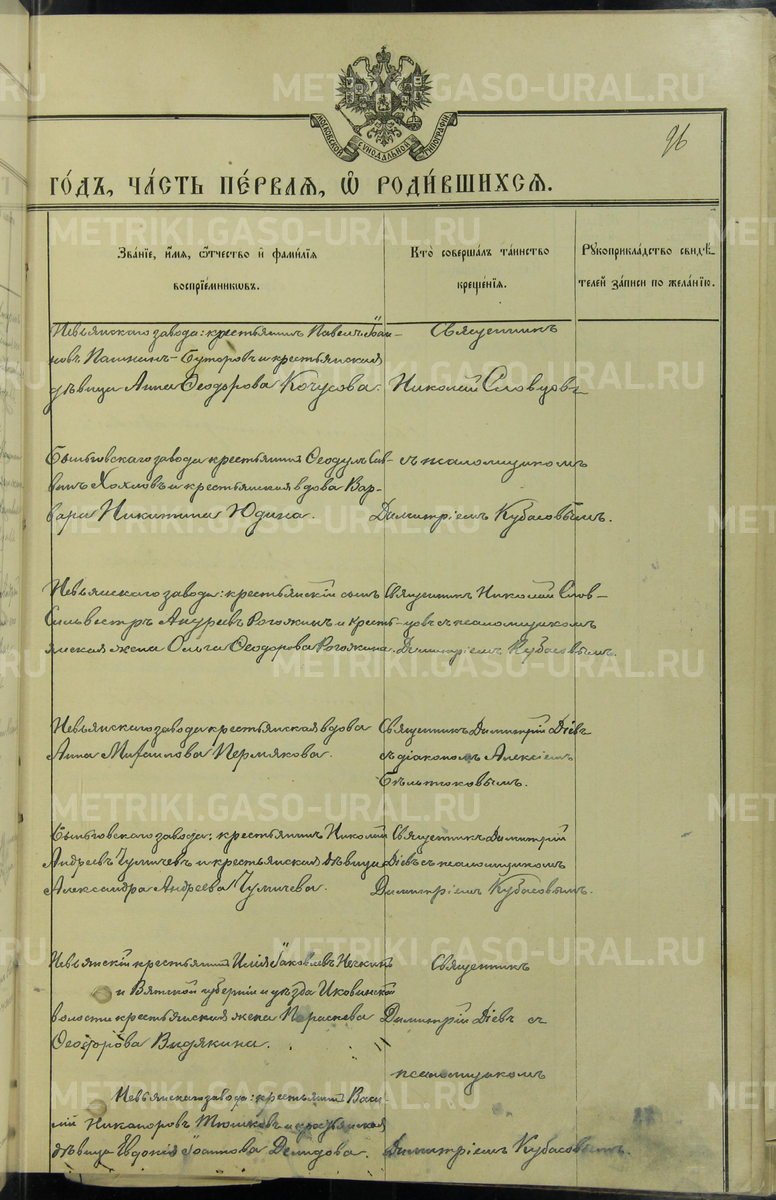 МОСКОВСКОЙ СѴНОДАЛЬНОЙ ТИПОГРАФІИ
96
ГО́ДЪ, ЧА́СТЬ ПЕ́РВАЯ, Ѽ РОДИ́ВШИХСЯ.
Зва́ніе, и́мя, ѻ҆́тчество и҆ фами́лія
воспріе́мниковъ.
Кто̀ соверша́лъ та́инство
креще́нія.
Рꙋкоприкла́дство свидѣ́-
телей за́писи по жела́нію.
Невьянскаго завода: крестьянинъ Павелъ Іоан-
новъ Пашкинъ-Буторовъ и крестьянская
дѣвица Анна Ѳеодорова Кочусова.
Священникъ
Николай Словцовъ
Быньговскаго завода крестьянинъ Ѳеодулъ Сав-
винъ Хохловъ и крестьянская вдова Вар-
вара Никитина Юдина.
съ псаломщикомъ
Димитріемъ Кубасовымъ.
Невьянскаго завода: крестьянскій сынъ
Сильвестръ Андреевъ Рогожинъ и кресть-
янская жена Ольга Ѳеодорова Рогожина.
Священникъ Николай Слов-
цовъ съ псаломщикомъ
Димитріемъ Кубасовымъ.
Невьянскаго завода крестьянская вдова
Анна Михаилова Пермякова.
Священникъ Димитрій Діевъ
съ діакономъ Алексіемъ
Бѣльтюковымъ.
Быньговскаго завода: крестьянинъ Николай
Андреевъ Чумичевъ и крестьянская дѣвица
Александра Андреева Чумичева.
Священникъ Димитрій
Діевъ съ псаломщикомъ
Димитріемъ Кубасовымъ.
Невьянскій крестьянинъ Илія Іаковлевъ Нечкинъ
и Вятской губерніи и уѣзда
волости крестьянская жена Параскева
Ѳеодорова Видякина.
Священникъ
Димитрій Діевъ съ
псаломщикомъ
Димитріемъ Кубасовымъ.
Невьянскаго завода: крестьянинъ Васи-
лій Никаноровъ Тюшковъ и крестьянская
дѣвица Евдокія Іоаннова Демидова.
METRIKI.GASO-URAL.RU